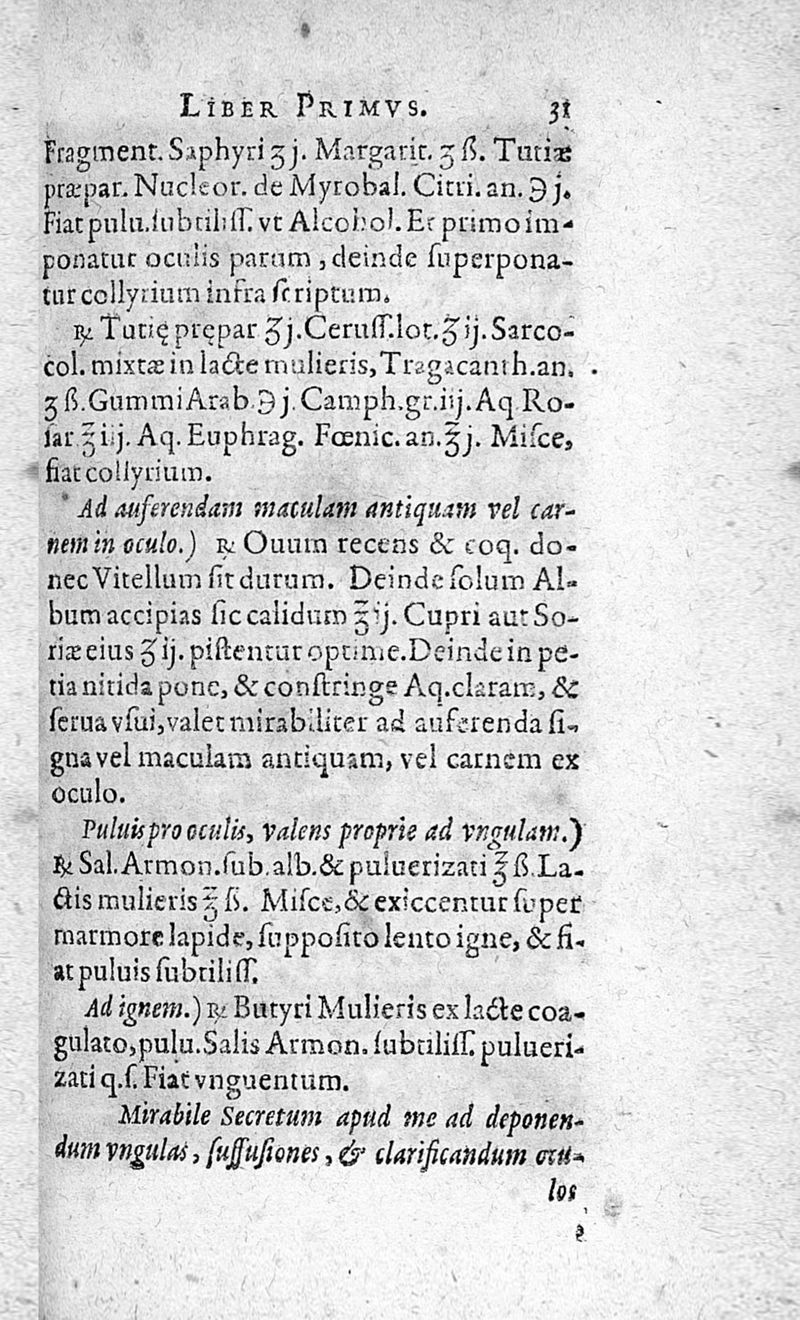 LIBER PRIMVS. 31
Fragment. Saphyri ʒ j. Margarit. ʒ ß. Tutiæ
præpar. Nucleor. de Myrobal. Citri. an. ℈ j.
Fiat pulu. ſubtiliſſ. vt Alcohol. Et primo im-
ponatur oculis parum, deinde ſuperpona-
tur collyrium infra ſcriptum.
℞ Tutię prępar ℥j. Ceruſſ. lot. ℥ ij. Sarco-
col. mixtæ in lacte mulieris, Tragacanth. an.
ʒ ß. Gummi Arab. ℈ j. Camph. gr. iij. Aq Ro-
ſar ℥ iij. Aq. Euphrag. Fœnic. an. ℥ j. Miſce,
fiat collyrium.
Ad auferendam maculam antiquam vel car-
nem in oculo.) ℞ Ouum recens & coq. do-
nec Vitellum ſit durum. Deinde ſolum Al-
bum accipias ſic calidum ℥ ij. Cupri aut So-
riæ eius ℥ ij. piſtentur optime. Deinde in pe-
tia nitida pone, & conſtringe Aq. claram, &
ſerua vſui, valet mirabiliter ad auferenda ſi-
gna vel maculam antiquam, vel carnem ex
oculo.
Puluis pro oculis, valens proprie ad vngulam.)
℞ Sal. Armon. ſub. alb. & puluerizati ℥ ß. La-
ctis mulieris ℥ ß. Miſce, & exiccentur ſuper
marmore lapide, ſuppoſito lento igne, & fi-
at puluis ſubtiliſſ.
Ad ignem.) ℞ Butyri Mulieris ex lacte coa-
gulato, pulu. Salis Armon. ſubtiliſſ. pulueri-
zati q. ſ. Fiat vnguentum.
Mirabile Secretum apud me ad deponen-
dum vngulas, ſuffuſiones, & clarificandum ocu-
los